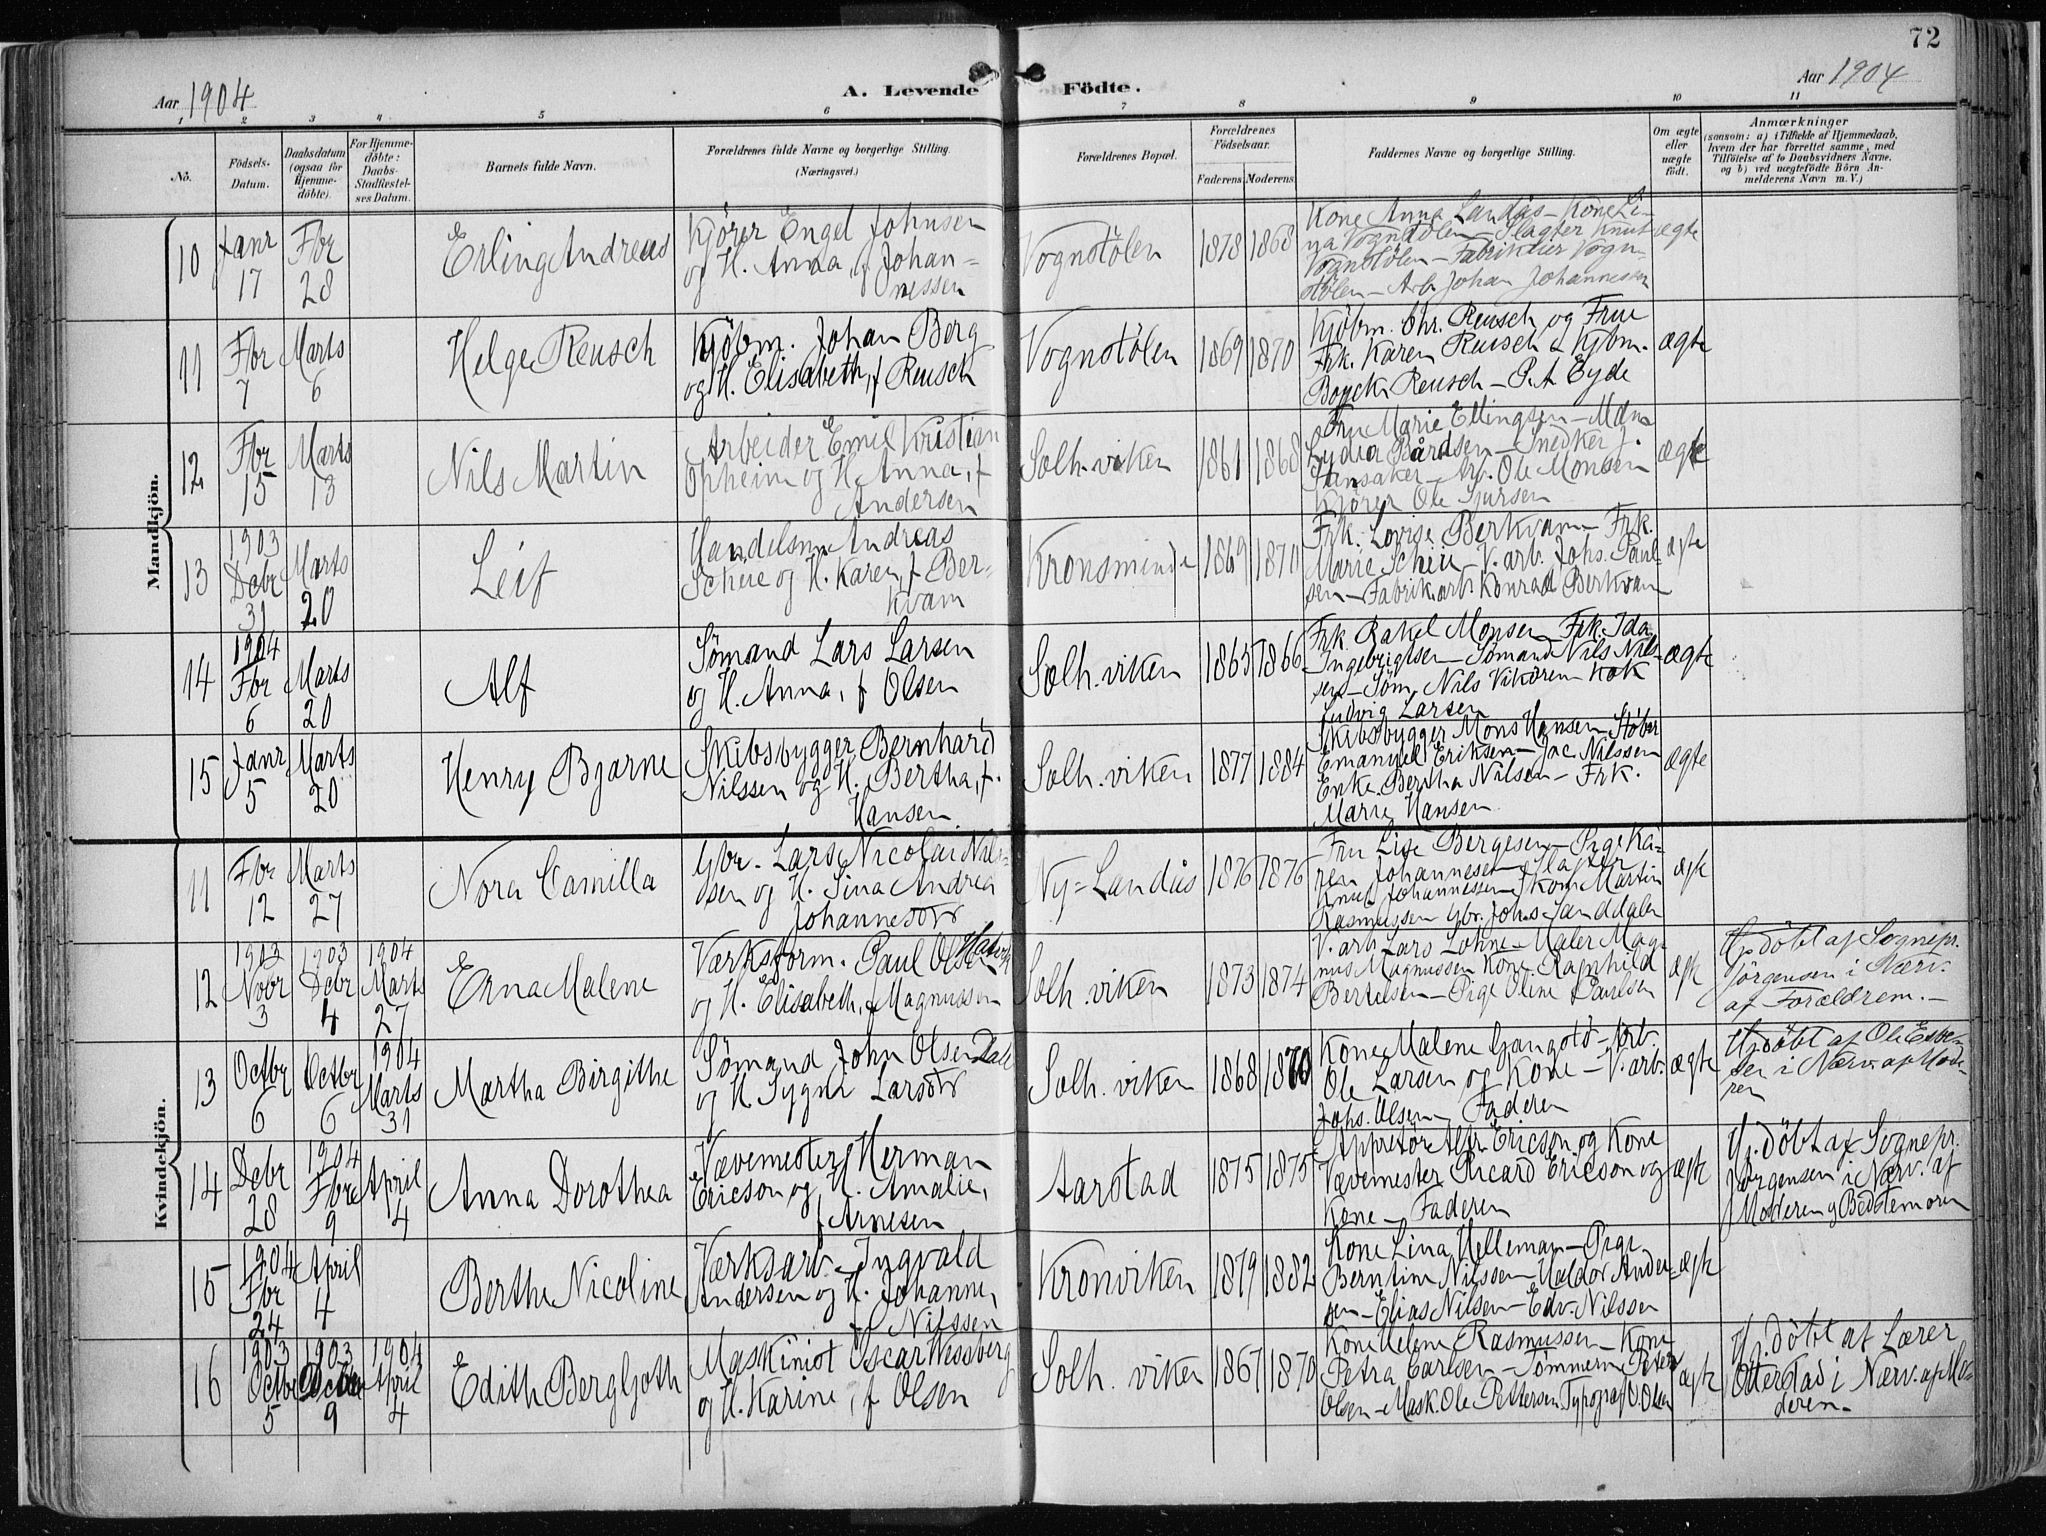 72
Aar 1904
A. Levende Födte.
Aar 1904
1 2 3 4 5 6 7 8 9 10 11
No.
Födsels-Datum.
Daabsdatum (ogsaa for Hjemme-döbte).
For Hjemme-döbte: Daabs-Stadfæstel-ses Datum.
Barnets fulde Navn.
Forældrenes fulde Navne og borgerlige Stilling. (Næringsvei.)
Forældrenes Bopæl.
Forældrenes Födselsaar.
Faderens Moderens.
Faddernes Navne og borgerlige Stilling.
Om ægte eller uægte födt.
Anmærkninger
(saasom: a) i Tilfælde af Hjemmedaab, hvem der har forrettet samme, med Tilföielse af to Daabsvidners Navne, og b) ved uægtefödte Börn An-melderens Navn m. V.)
Mandkjön.
10 Janr 17 Fbr 28 Erling Andreas
Kjörer Engel Johnsen
og H. Anna, f Johan-
nessen
Vognstölen 1878 1868
Kone Anna Landås - Kone Li-
na Vognstölen - Slagter Knut
Vognstölen - Fabrikeier Vogn-
stölen - Arb Johan Johannessen
ægte
11 Fbr 7 Marts 6 Helge Reusch
Kjöbm. Johan Berg
og H. Elisabeth, f Reusch
Vognstölen 1869 1870
Kjöbm. Chr. Reusch og Frue
Frk. Karen Reusch - Kjöbm.
Reusch - P. A Eyde
ægte
12 Fbr 15 Marts 13 Nils Martin
Arbeider Emil Kristian
Opheim og H. Anna, f
Andersen
Solh. viken 1861 1868
Fru Marie Ellingsen -
Lydia Bårdsen - Snedker J.
- Arb. Ole Monsen
Kjörer Ole Sjursen
ægte
13 1903 Decbr 31 Marts 20 Leif
Handelsm Andreas
Scheie og H. Karen, f Ber-
kvam
Kronsminde 1869 1870
Frk. Lovise Berkvam - Frk.
Marie Scheie - V. arb. Johs. Paul-
sen - Fabrikarb. Konrad Berkvam
ægte
14 1904 Fbr 6 Marts 20 Alf
Sömand Lars Larsen
og H. Anna, f Olsen
Solh. viken 1865 1866
Frk. Rakel Monsen - Frk. Ida
Ingebrigtsen - Sömand Nils Nil-
sen - Söm. Nils Vikören Kok
Ludvig Larsen
ægte
15 Janr 5 Marts 20 Henry Bjarne
Skibsbygger Bernhard
Nilssen og H. Bertha, f.
Hansen
Solh. viken 1877 1884
Skibsbygger Mons Hansen - Stöber
Emanuel Eriksen - Jac Nilssen
Enke Bertha Nilsen - Frk.
Marie Hansen
ægte
Kvindekjön.
11 Fbr 12 Marts 27 Nora Camilla
Gbr. Lars Nicolai Nils-
sen og H. Sina Andrea
Johannesdtr
Ny=Landås 1876 1876
Fru Lise Bergesen - Pige Ka-
ren Johannesen - Slagter
Knut Johannessen - Martin
Rasmussen Gbr. Johs Sanddalen
ægte
12 1903 Novbr 3 1903 Decbr 4 1904 Marts 27 Erna Malene
Værksform. Paul Olsen
og H. Elisabeth, f Magnussen
Solh. viken 1873 1874
V. arb Lars Lohne - Maler Mag-
nus Magnussen Kone Ragnhild
Bertelsen - Pige Oline Paulsen
ægte
Hj. döbt af Sognepr.
Jörgensen i Nærv.
af Forældrene. -
13 Octbr 6 Octbr 6 1904 Marts 31 Martha Birgithe
Sömand John Olsen Dale
og H. Sygni Larsdtr
Solh. viken 1868 1870
Kone Malene - Arb.
Ole Larsen og Kone - V. arb.
Johs. Olsen - Faderen
ægte
Hj. döbt af Ole Espe-
sen i Nærv. af Mode-
ren
14 Decbr 28 1904 Fbr 9 April 4 Anna Dorothea
Vævemester Herman
Ericson og H. Amalie,
f Arnesen
Aarstad 1875 1875
Appretör Alfr. Ericson og Kone
Vævemester Ricard Ericson og
Kone - Faderen
ægte
Hj. döbt af Sognepr.
Jörgensen i Nærv. af
Moderen og Bedstemoren
15 1904 Fbr 24 April 4 Berthe Nicoline
Værksarb. Ingvald
Andersen og H. Johanne,
f Nilssen
Kronviken 1879 1882
Kone Lina Helleman - Pige
Berntine Nilssen - Haldor Ander-
sen - Elias Nilsen - Edv. Nilssen
ægte
16 1903 Octbr 5 1903 Octbr 9 1904 April 4 Edith Bergljoth
Maskinist Oscar Wessberg
og H. Karine, f Olsen
Solh. viken 1867 1870
Kone Helene Rasmussen - Kone
Petra Carlsen - Tömmerm Peter
Olsen - Mask. Ole Pettersen Typograf O. Olsen
ægte
Hj. döbt af Lærer
Otterstad i Nærv. af Mo-
deren.